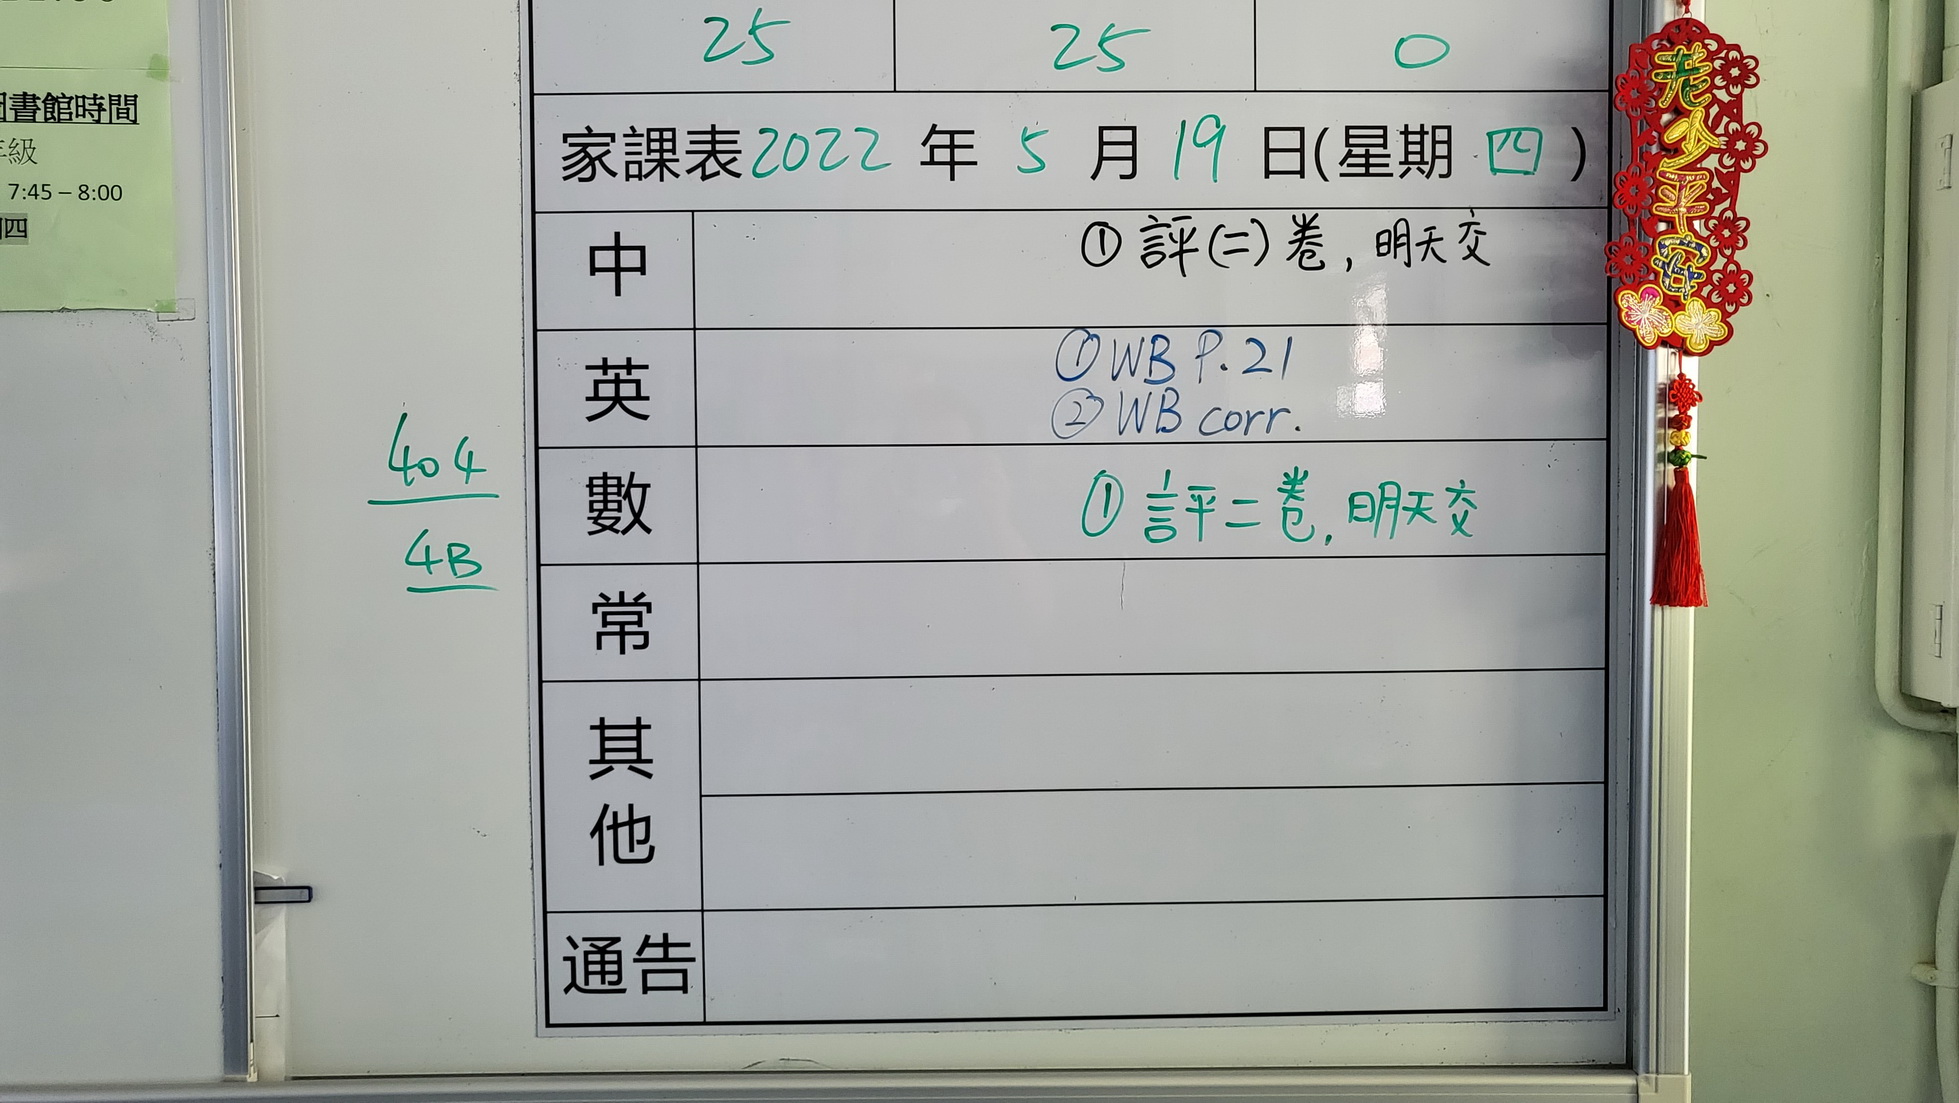 25 25 0
家課表2022 年 5 月 19 日(星期 四 )
中 ① 評(二)卷, 明天交
英 ① WB P.21
② WB corr.
數 ① 評二卷, 明天交
常
其他
通告
404
4B
書館時間
年級
7:45 – 8:00
四
老少平安